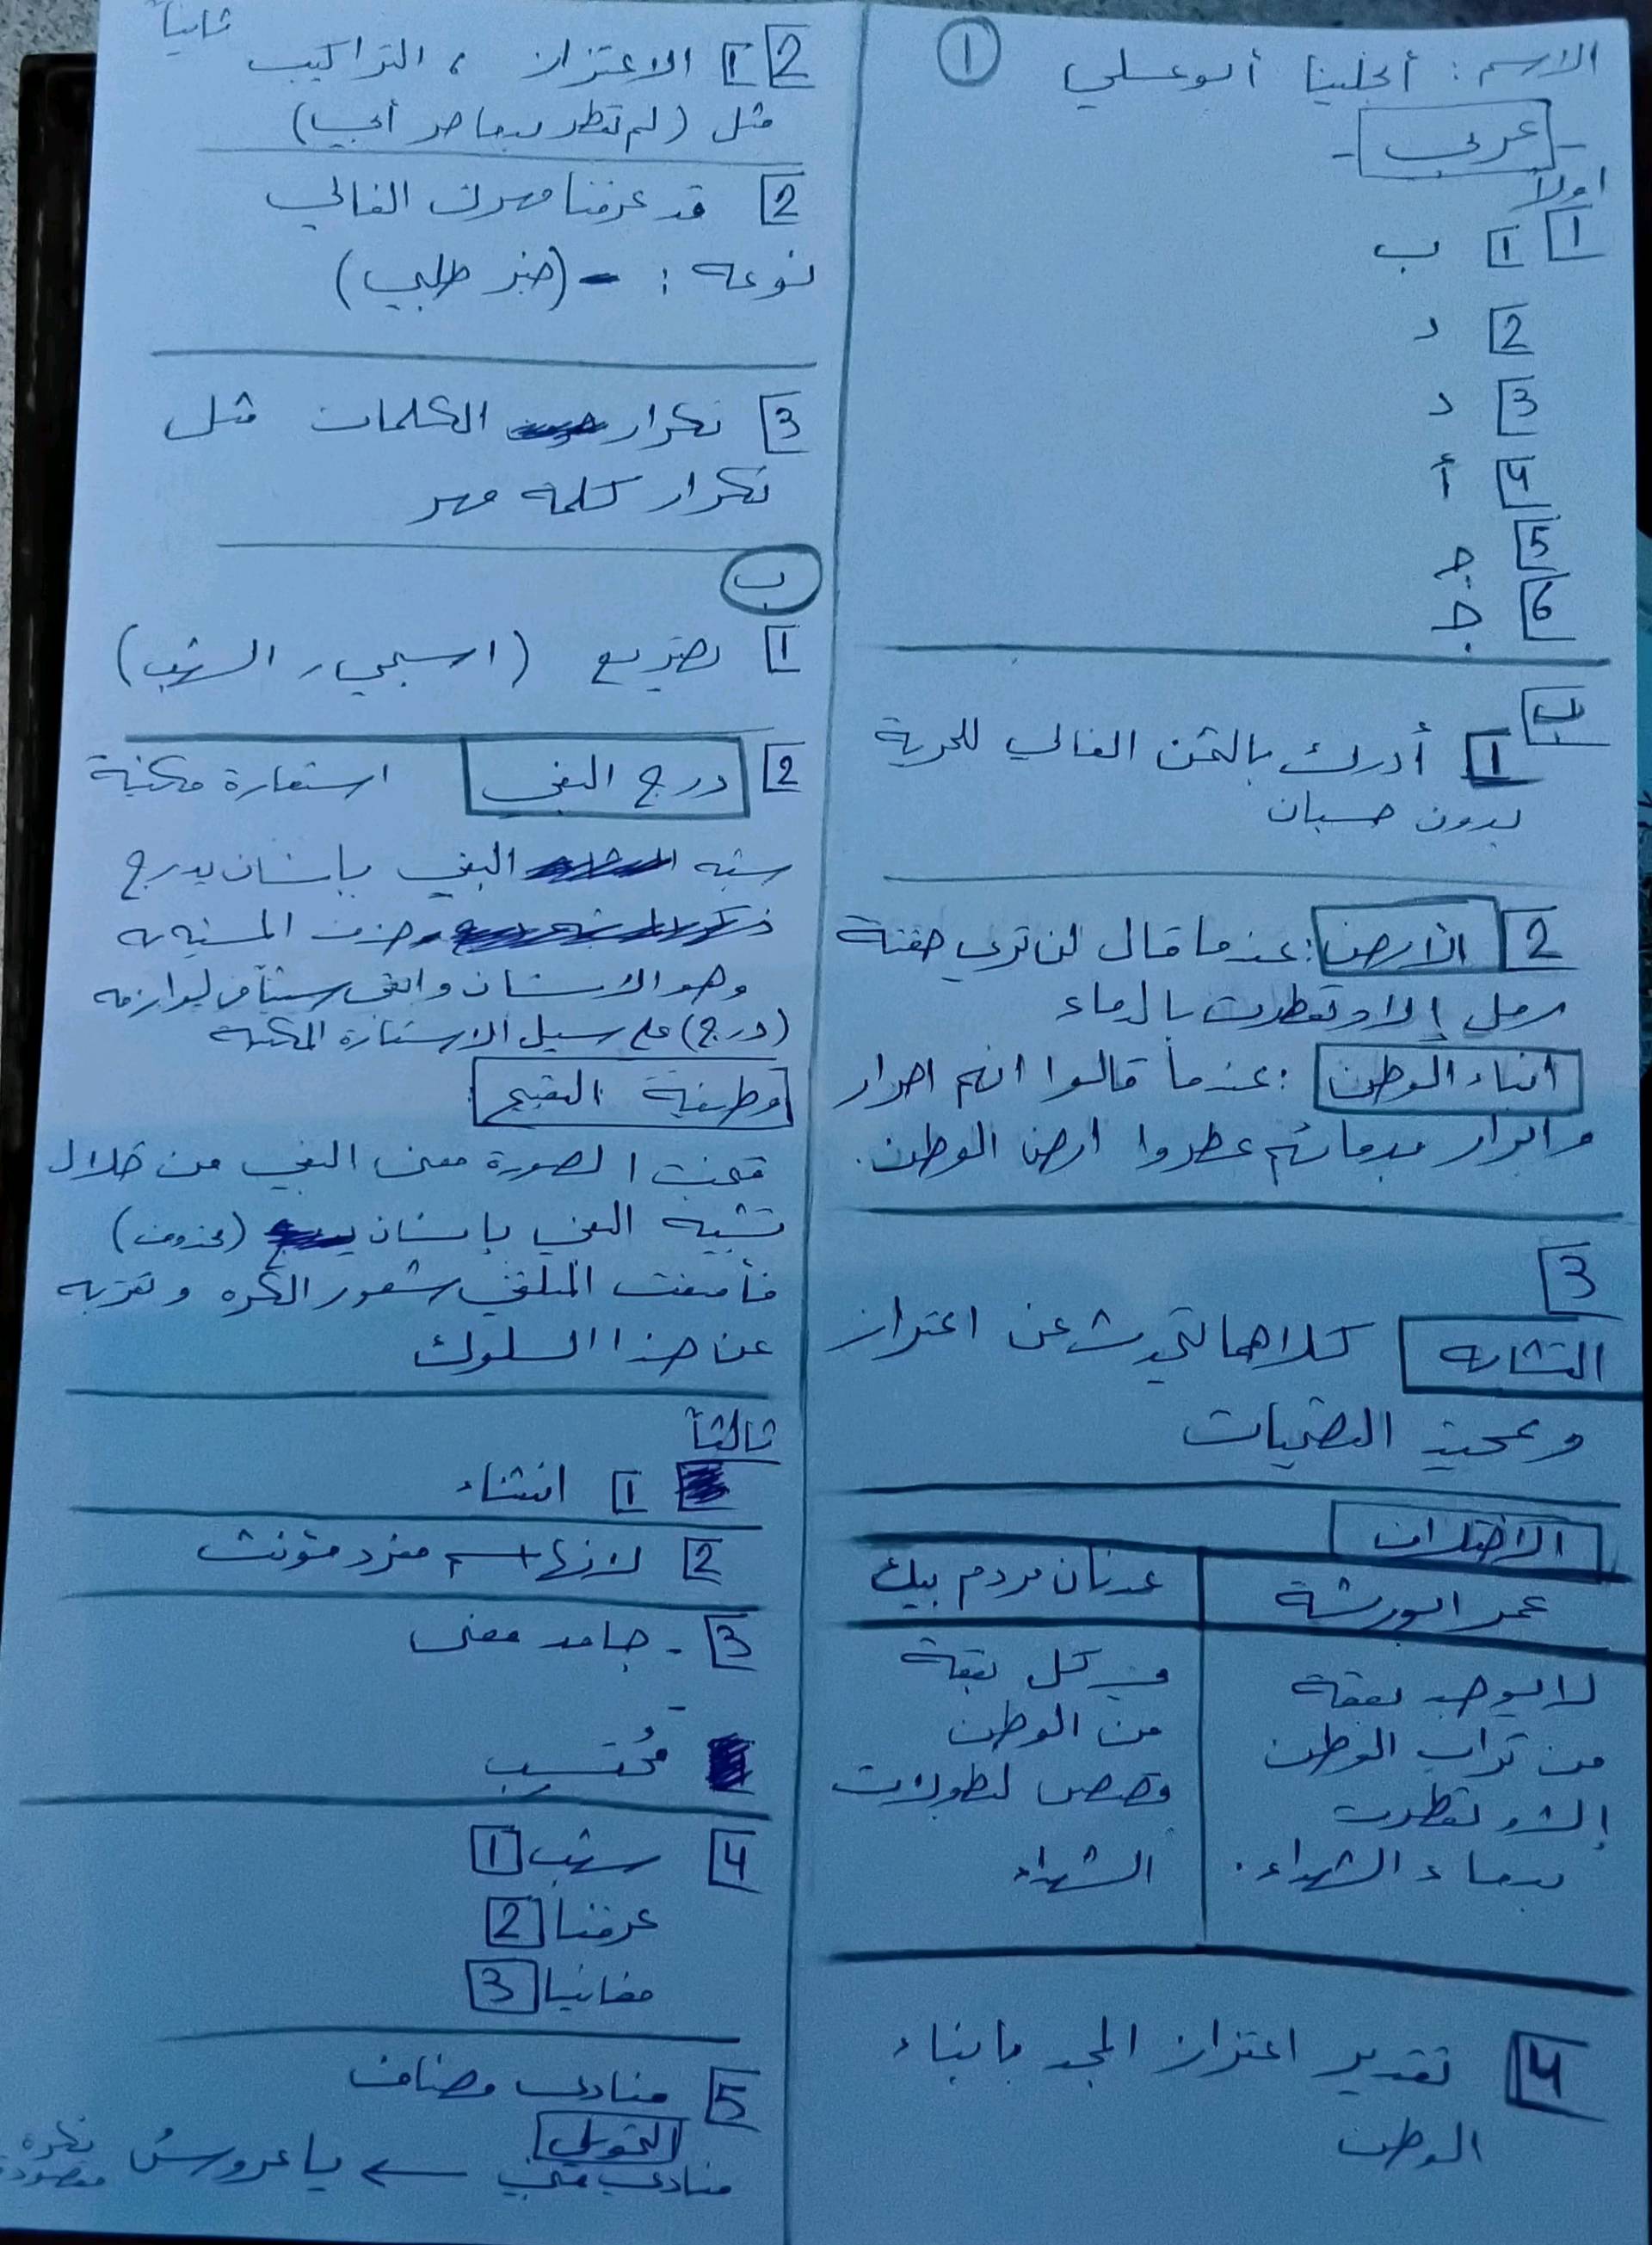 الاسم : أنجلينا أبوعسلي ①
- عربي -
اولاً
1 1 ب
2 د
3 د
4 أ
5 ج
6 ج
ب
1 أدرك بالثمن الغالي للحرية
بدون حسبان
2 الأرض : عندما قال لن تري حفنة
رمل إلا وتعطرت بالدماء
ابناء الوطن : عندما قالوا انهم احرار
وابرار بدمائهم عطروا ارض الوطن.
3
التشابه كلاهما تحدث عن اعتزاز
وتمجيد التضحيات
الاختلاف
عمر ابو ريشة
عدنان مردم بيك
لا يوجد بقعة
من تراب الوطن
تعطرت
بدماء الشهداء.
في كل بقعة
من الوطن
قصص لبطولات
الشهداء
4 تقدير اعتزاز المجد بابناء
الوطن
ثانياً
2 1 الاعتزاز ، التراكيب
مثل (لم تعطر بدما حر أبي)
2 قد عرفنا مهرك الغالي
نوعه : - (خبر طلبي)
3 تكرار الكلمات مثل
تكرار كلمه مهر
ب
1 تصريع (اسحبي ، الشهب)
2 درج البغي استعارة مكنية
شبه البغي بإنسان يدرج
حذف المشبه به
وهو الانسان وابقى شيئاً من لوازمه
(درج) على سبيل الاستعارة المكنيه
وظيفية التقبيح
قبحت الصورة معنى البغي من خلال
تشبيه البغي بإنسان (محذوف)
المتلقي شعور الكره
عن هذا السلوك
ثالثاً
1 انتشاء
2 لانها اسم مفرد مؤنث
3 - جامد معنى
-
مُحتسب
4 شهب 1
عرفنا 2
مغانيا 3
5 منادى مضاف
التحويل
منادى مبني ← يا عروسُ نكره
مقصودة